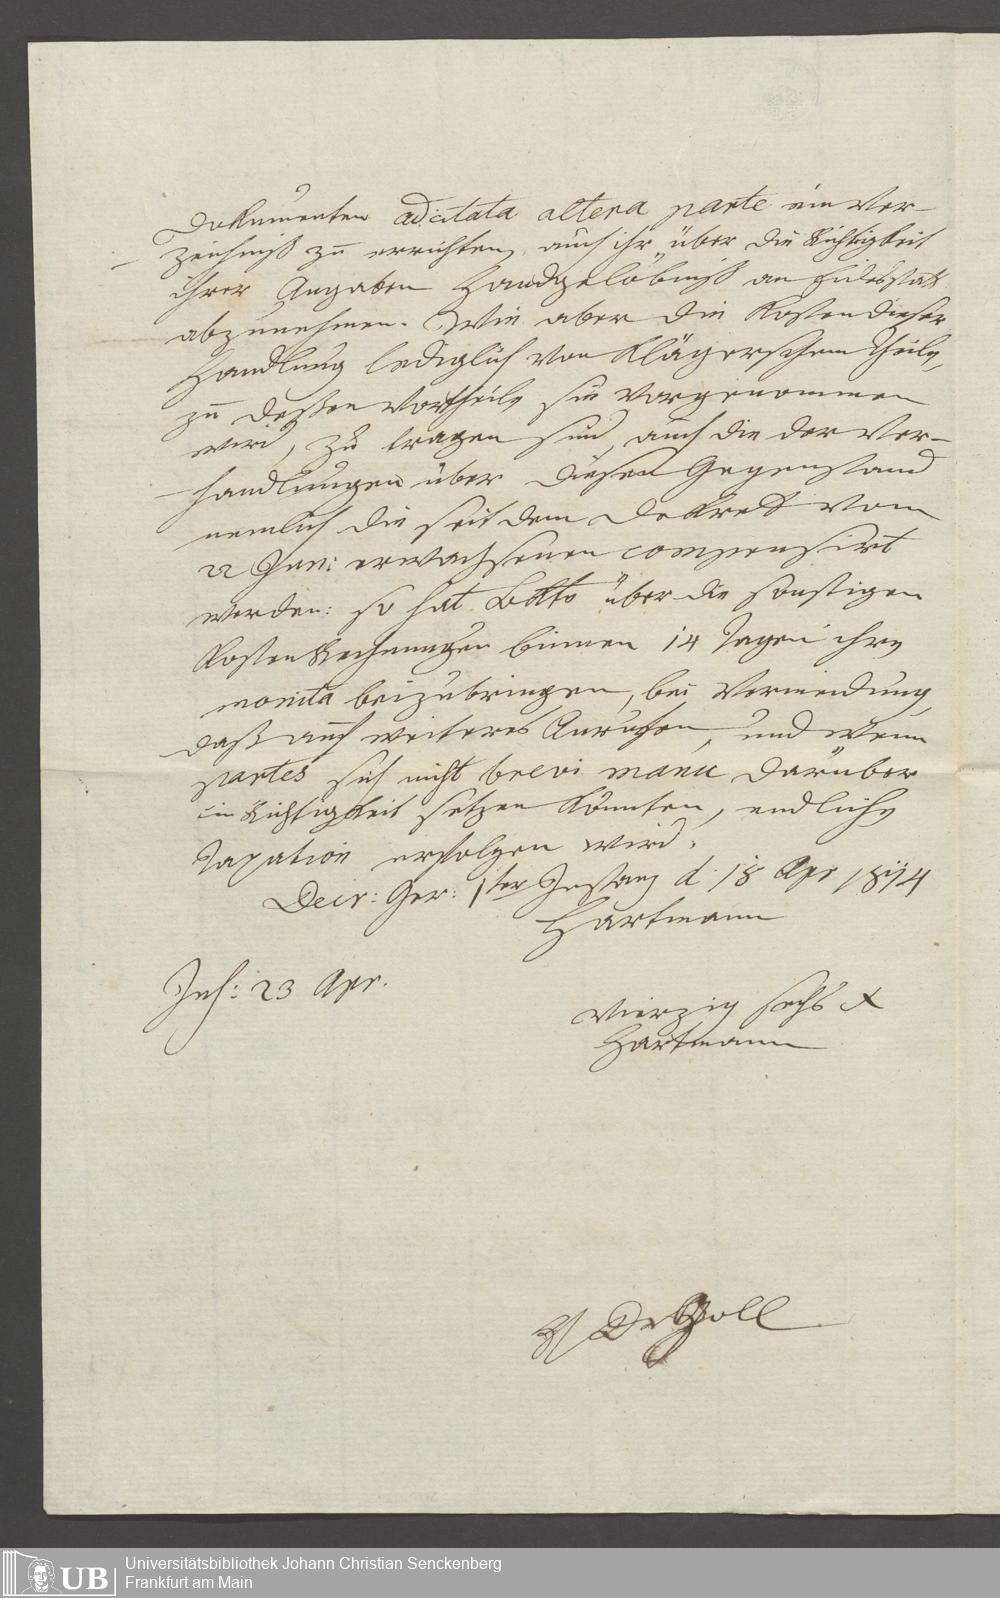 Dokumenten adcitata altera parte ein Ver-
zeichniß zu errichten, auch ihr über die Richtigkeit
ihrer Angaben Handgelöbniß an Eidesstatt
abzunehmen. Wie aber die Kosten dieser
Handlung lediglich von Klägerschem Theile,
zu dessen Vortheile sie vorgenommen
wird, zu tragen sind, auch die der Ver-
handlungen über diesen Gegenstand
nemlich die seit dem Dekret vom
22 Jan: erwachsenen compensirt
werden: so hat Bkltr über die sonstigen
Kosten Rechnungen binnen 14 Tagen ihre
monita beizubringen, bei Vermeidung,
daß auf weiteres Anrufen, und wenn
partes sich nicht brevi manu darüber
in Richtigkeit setzen könnten, endliche
Taxation erfolgen wird.
Decr: Ger: 1ter Instanz d. 18 Apr 1814
Hartmann
Ins: 23 Apr.
Vierzig sechs x
Hartmann
Dr
Universitätsbibliothek Johann Christian Senckenberg
Frankfurt am Main
UB